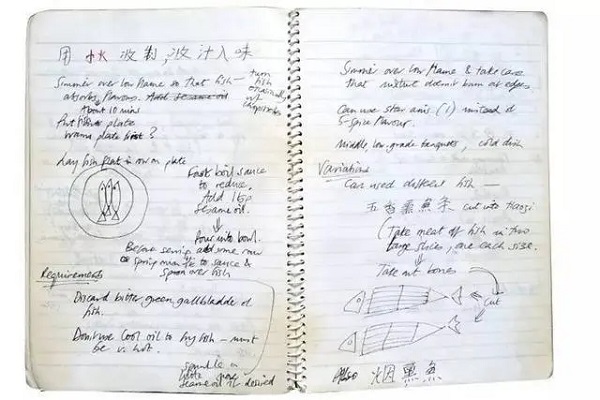 用 水 收制,收汁入味
Simmer over low flame so that fish
absorbs flavours. Add sesame oil
About 10 mins
turn
fish
occasionally
Put plate
warm plate first ?
Lay fish flat in row on plate
Fast boil sauce
to reduce.
Add 1 tsp
sesame oil.
Pour into bowl.
Before serving add some
spring to sauce &
spoon over fish
Requirements
Discard bitter green gallbladder of
fish.
Don't use cool oil to fry fish – must
be v. hot.
sprinkle a
little more
sesame oil if desired
Simmer over low flame & take care
that mixture doesn't burn at edges.
Can use star anis (1) instead of
5-spice flavour.
Middle, low-grade banquets, cold dish
Variations
Can used different fish —
五香熏魚条 cut into
(Take meat of fish in two
large slices, one each size.
Take out bones
cut
Also 烟熏魚